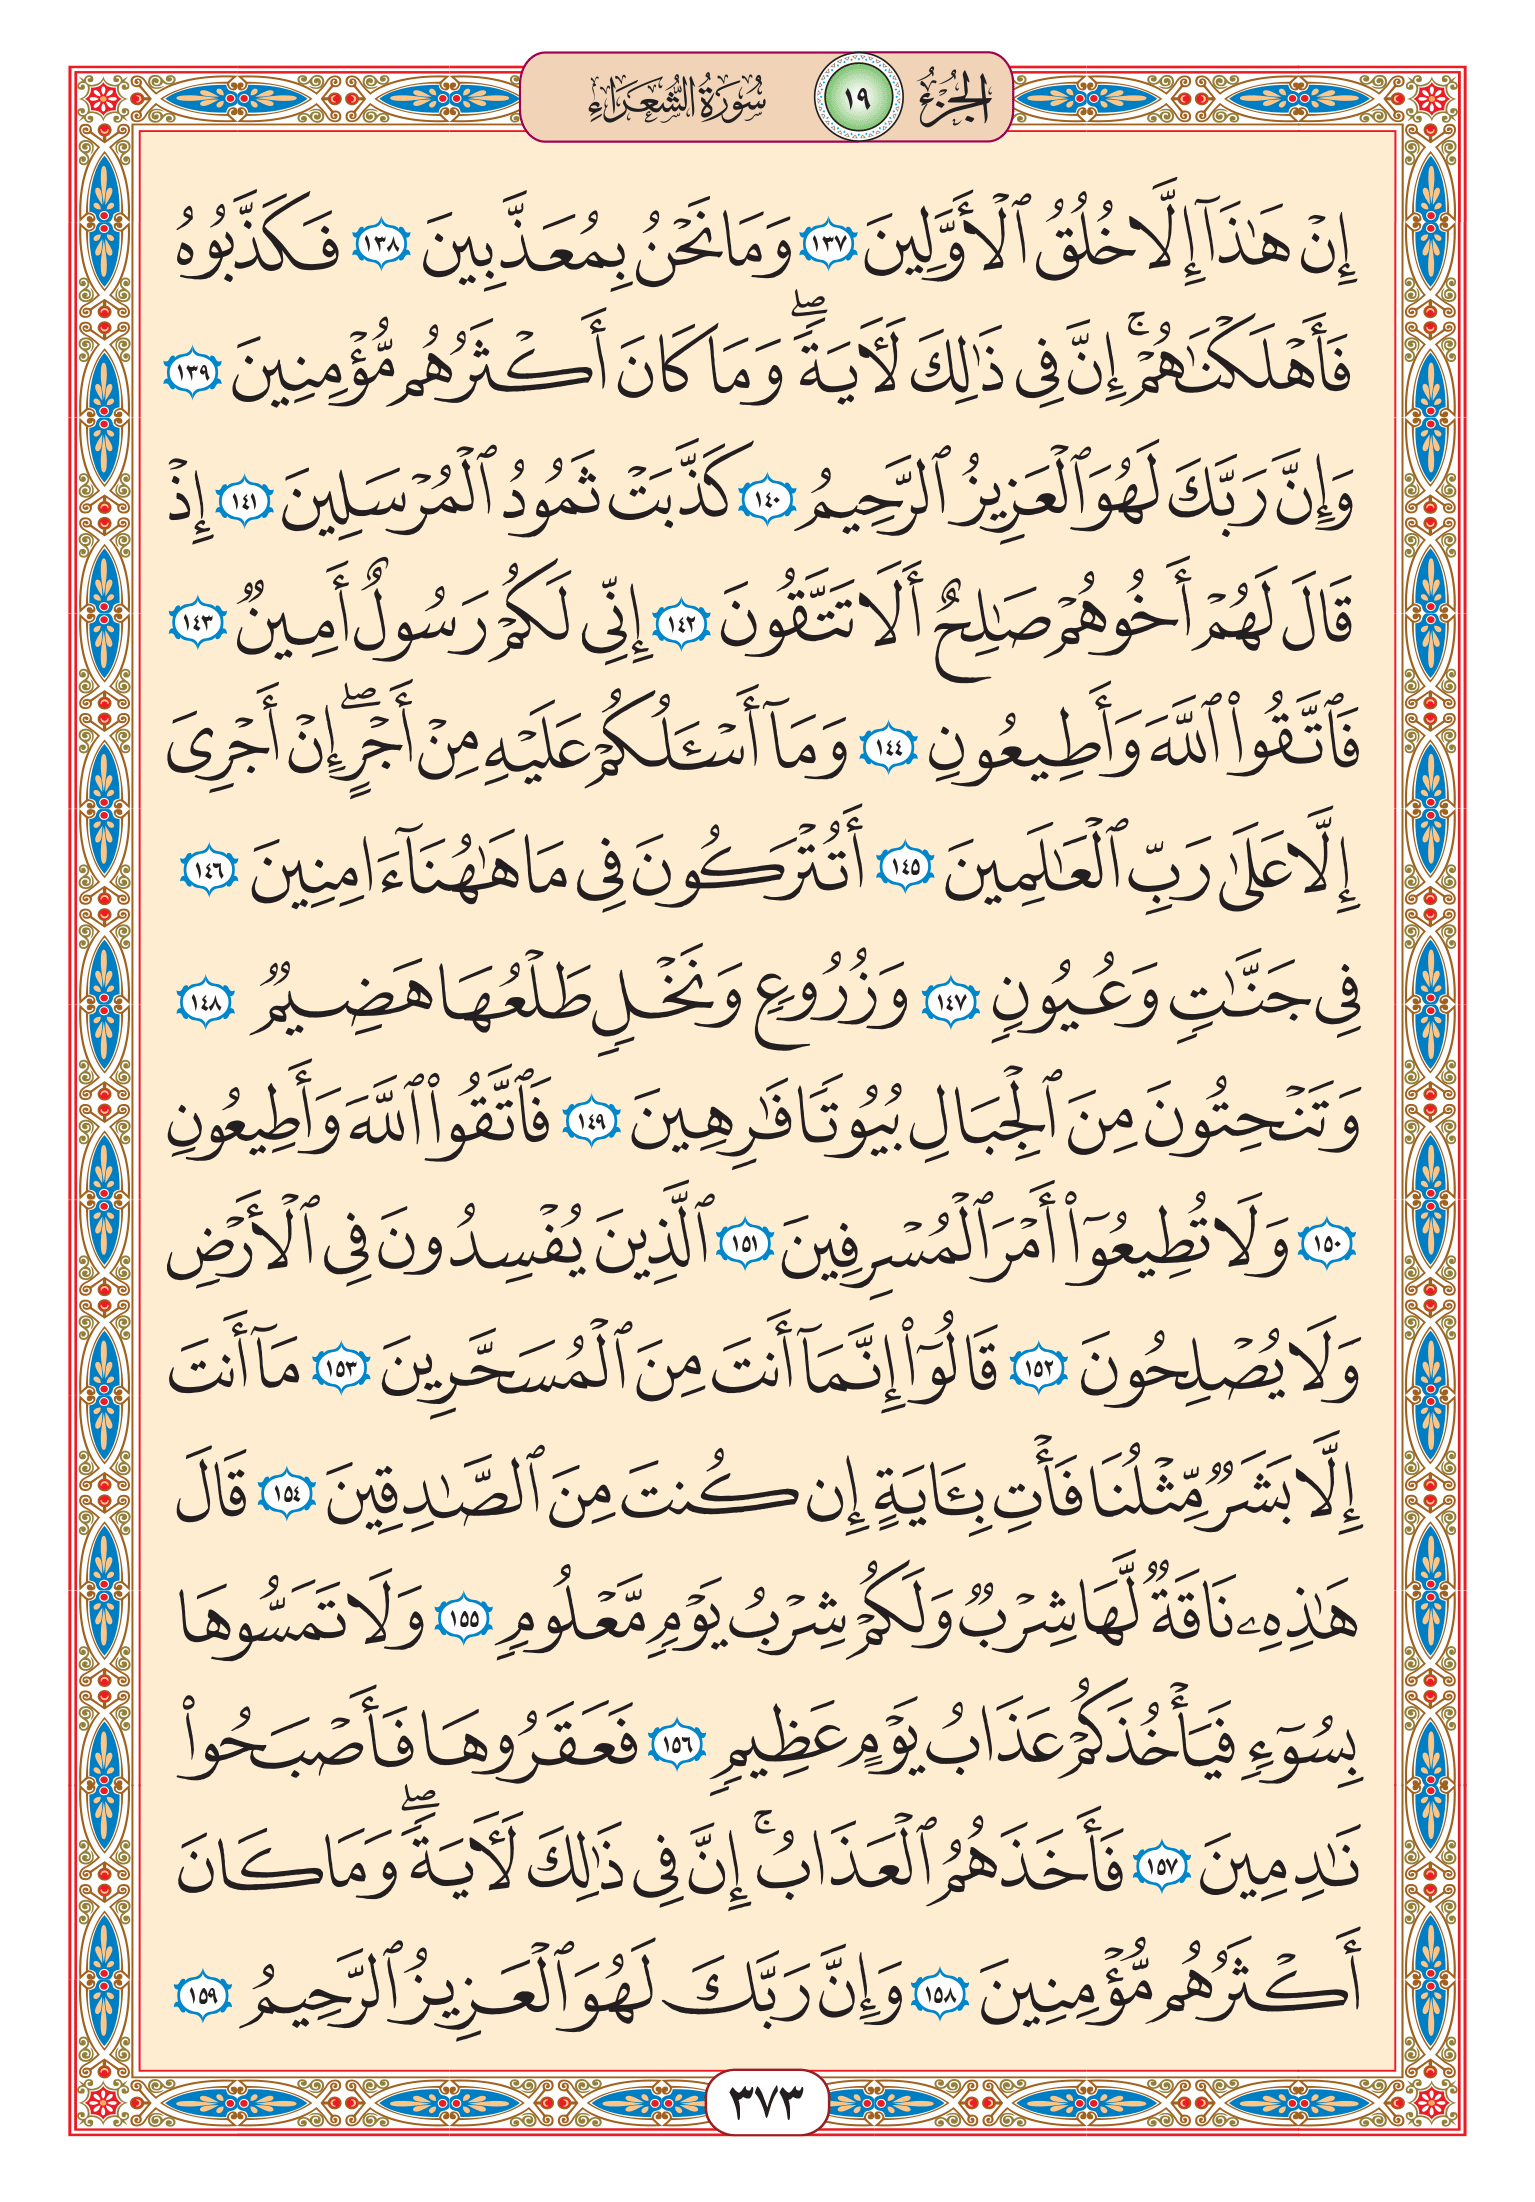 الجزء ١٩ سورة الشعراء
إِنْ هَٰذَآ إِلَّا خُلُقُ ٱلْأَوَّلِينَ ١٣٧ وَمَا نَحْنُ بِمُعَذَّبِينَ ١٣٨ فَكَذَّبُوهُ
فَأَهْلَكْنَٰهُمْ ۚ إِنَّ فِى ذَٰلِكَ لَـَٔايَةً ۖ وَمَا كَانَ أَكْثَرُهُم مُّؤْمِنِينَ ١٣٩
وَإِنَّ رَبَّكَ لَهُوَ ٱلْعَزِيزُ ٱلرَّحِيمُ ١٤٠ كَذَّبَتْ ثَمُودُ ٱلْمُرْسَلِينَ ١٤١ إِذْ
قَالَ لَهُمْ أَخُوهُمْ صَٰلِحٌ أَلَا تَتَّقُونَ ١٤٢ إِنِّى لَكُمْ رَسُولٌ أَمِينٌ ١٤٣
فَٱتَّقُوا۟ ٱللَّهَ وَأَطِيعُونِ ١٤٤ وَمَآ أَسْـَٔلُكُمْ عَلَيْهِ مِنْ أَجْرٍ ۖ إِنْ أَجْرِىَ
إِلَّا عَلَىٰ رَبِّ ٱلْعَٰلَمِينَ ١٤٥ أَتُتْرَكُونَ فِى مَا هَٰهُنَآ ءَامِنِينَ ١٤٦
فِى جَنَّٰتٍ وَعُيُونٍ ١٤٧ وَزُرُوعٍ وَنَخْلٍ طَلْعُهَا هَضِيمٌ ١٤٨
وَتَنْحِتُونَ مِنَ ٱلْجِبَالِ بُيُوتًا فَٰرِهِينَ ١٤٩ فَٱتَّقُوا۟ ٱللَّهَ وَأَطِيعُونِ
١٥٠ وَلَا تُطِيعُوٓا۟ أَمْرَ ٱلْمُسْرِفِينَ ١٥١ ٱلَّذِينَ يُفْسِدُونَ فِى ٱلْأَرْضِ
وَلَا يُصْلِحُونَ ١٥٢ قَالُوٓا۟ إِنَّمَآ أَنتَ مِنَ ٱلْمُسَحَّرِينَ ١٥٣ مَآ أَنتَ
إِلَّا بَشَرٌ مِّثْلُنَا فَأْتِ بِـَٔايَةٍ إِن كُنتَ مِنَ ٱلصَّٰدِقِينَ ١٥٤ قَالَ
هَٰذِهِۦ نَاقَةٌ لَّهَا شِرْبٌ وَلَكُمْ شِرْبُ يَوْمٍ مَّعْلُومٍ ١٥٥ وَلَا تَمَسُّوهَا
بِسُوٓءٍ فَيَأْخُذَكُمْ عَذَابُ يَوْمٍ عَظِيمٍ ١٥٦ فَعَقَرُوهَا فَأَصْبَحُوا۟
نَٰدِمِينَ ١٥٧ فَأَخَذَهُمُ ٱلْعَذَابُ ۚ إِنَّ فِى ذَٰلِكَ لَـَٔايَةً ۖ وَمَا كَانَ
أَكْثَرُهُم مُّؤْمِنِينَ ١٥٨ وَإِنَّ رَبَّكَ لَهُوَ ٱلْعَزِيزُ ٱلرَّحِيمُ ١٥٩
٣٧٣